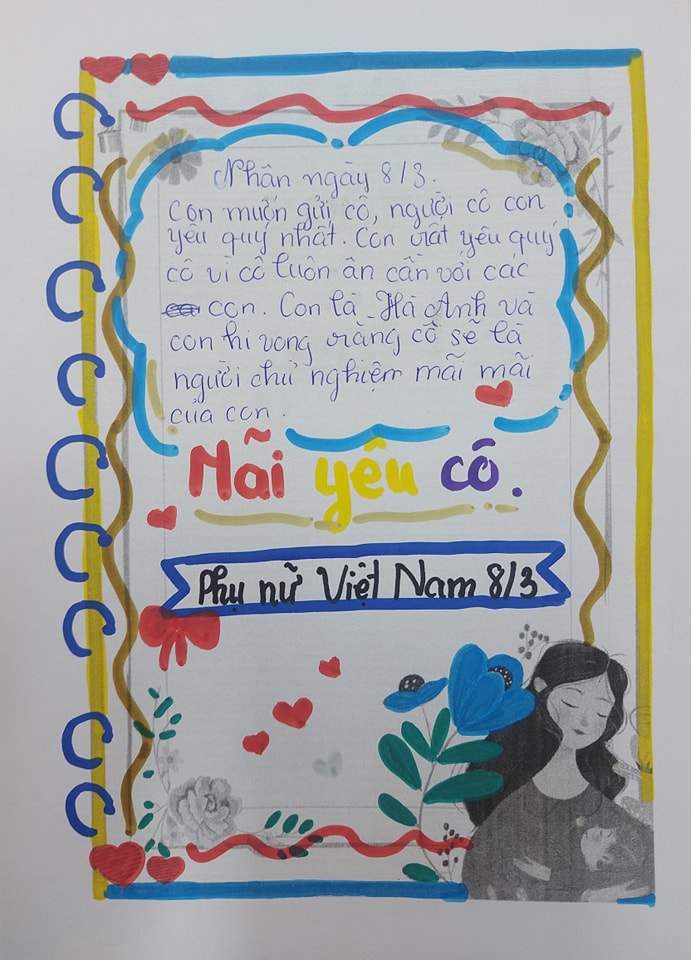 Nhân ngày 8/3.
Con muốn gửi cô, người cô con
yêu quý nhất. Con rất yêu quý
cô vì cô luôn ân cần với các
con. Con là Hà Anh và
con hi vọng rằng cô sẽ là
người chủ nghiệm mãi mãi
của con.
Mãi yêu cô.
Phụ nữ Việt Nam 8/3